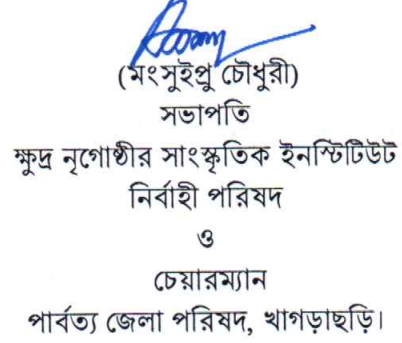 (মংসুইপ্রু চৌধুরী)
সভাপতি
ক্ষুদ্র নৃগোষ্ঠীর সাংস্কৃতিক ইনস্টিটিউট
নির্বাহী পরিষদ
ও
চেয়ারম্যান
পার্বত্য জেলা পরিষদ, খাগড়াছড়ি।